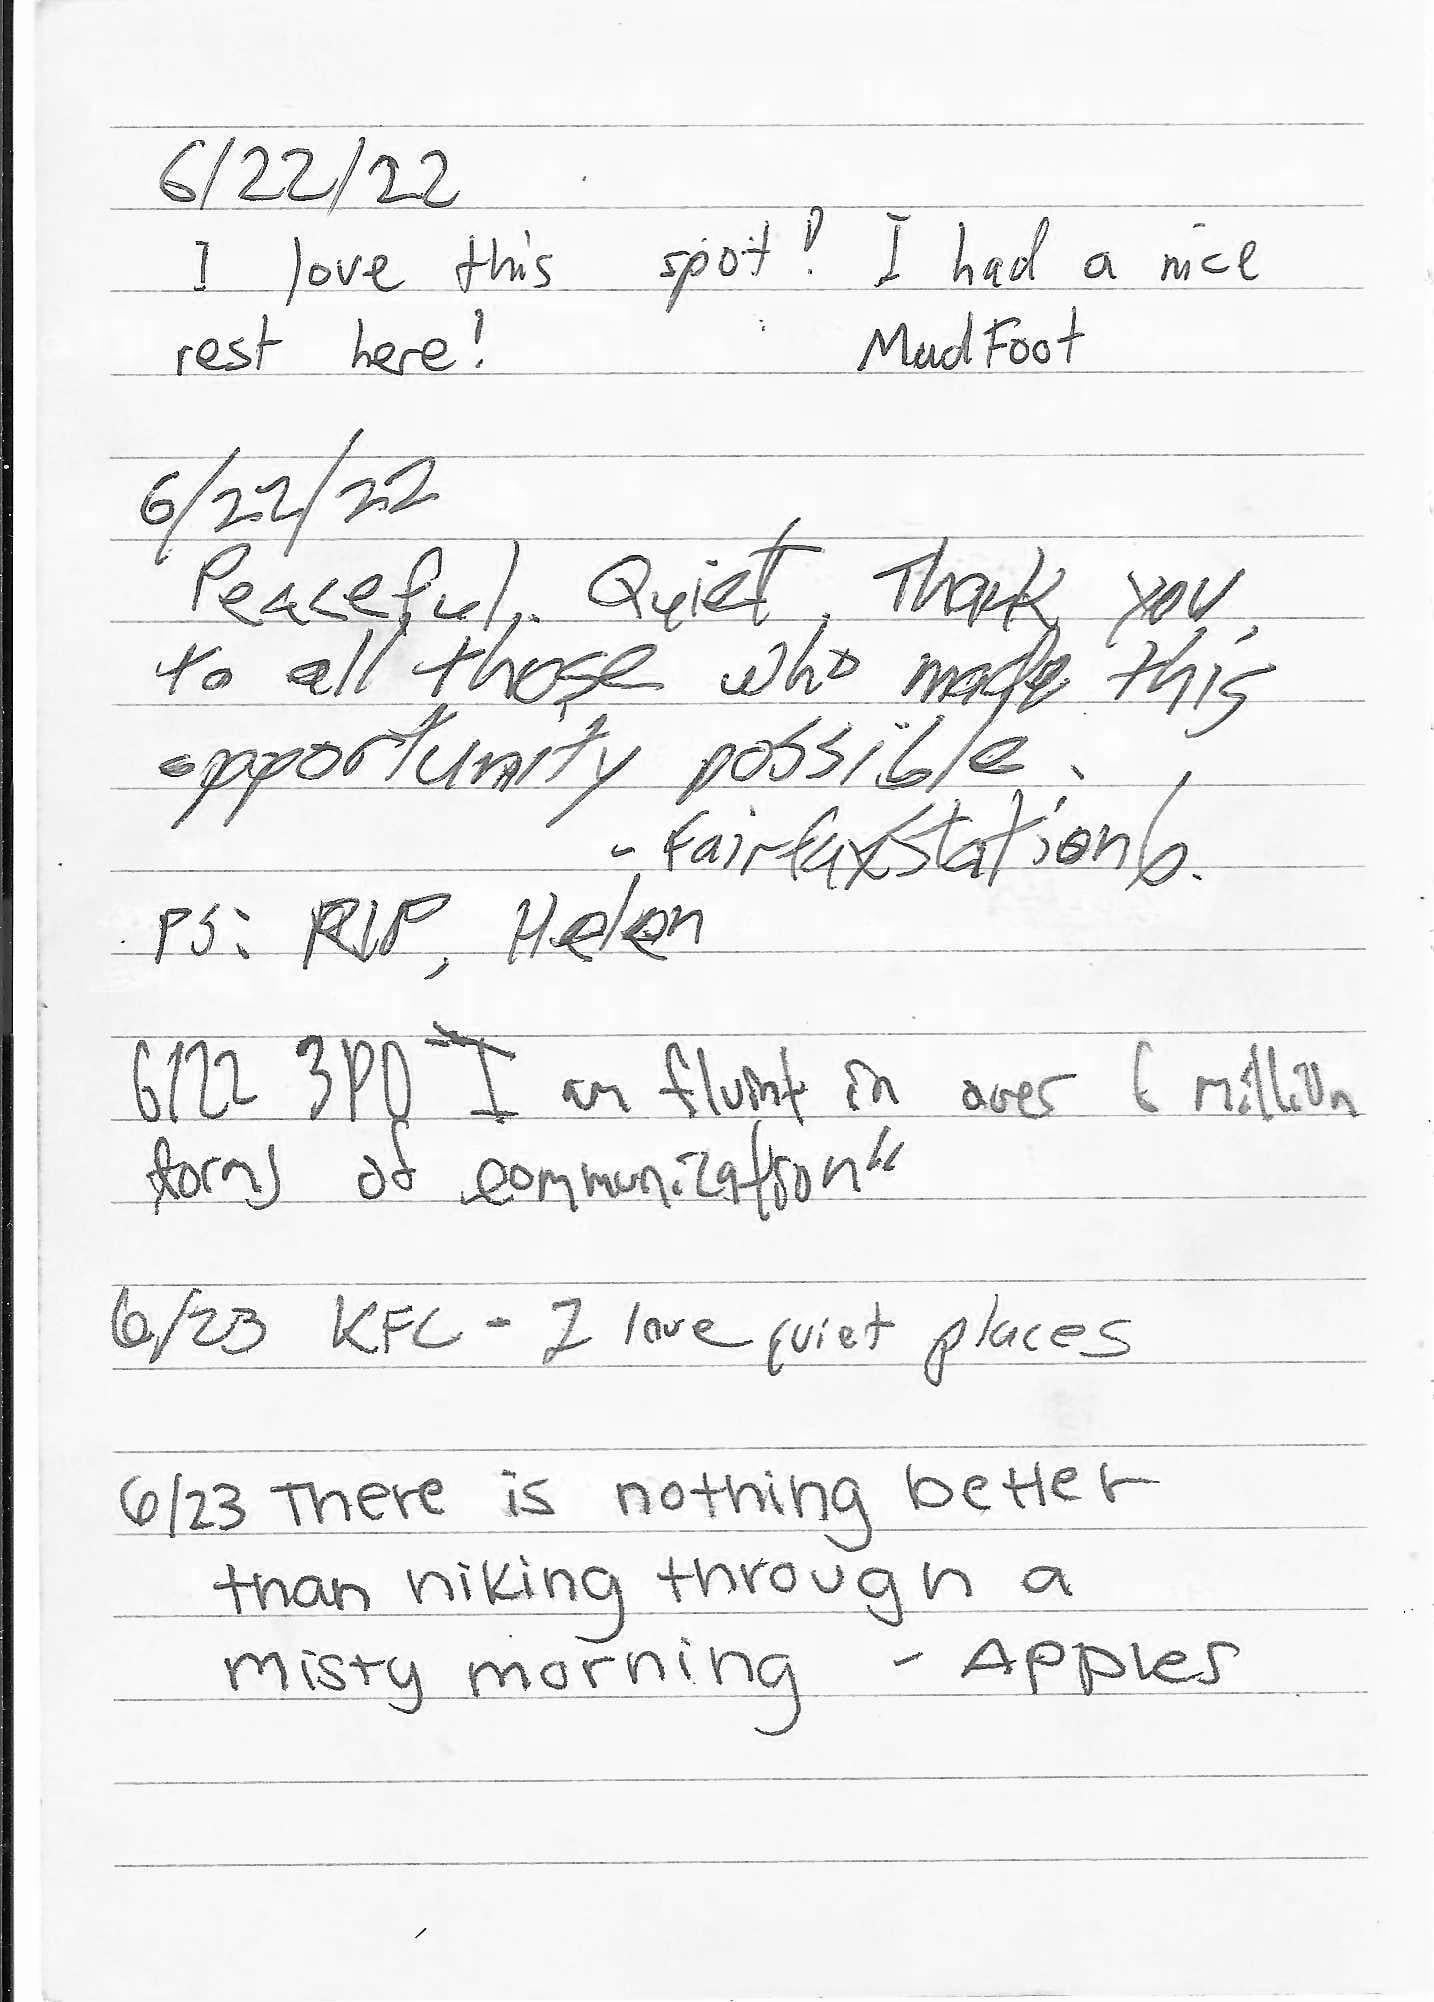 6/22/22
I love this spot! I had a nice
rest here! MudFoot
6/22/22
Peaceful. Quiet. Thank you,
to all those who made this
opportunity possible.
- Fairfaxstation6.
PS: RIP, Helen
6/22 3PO "I am fluint in over 6 million
forms of communization"
6/23 KFC - I love quiet places
6/23 There is nothing better
than hiking through a
misty morning - Apples